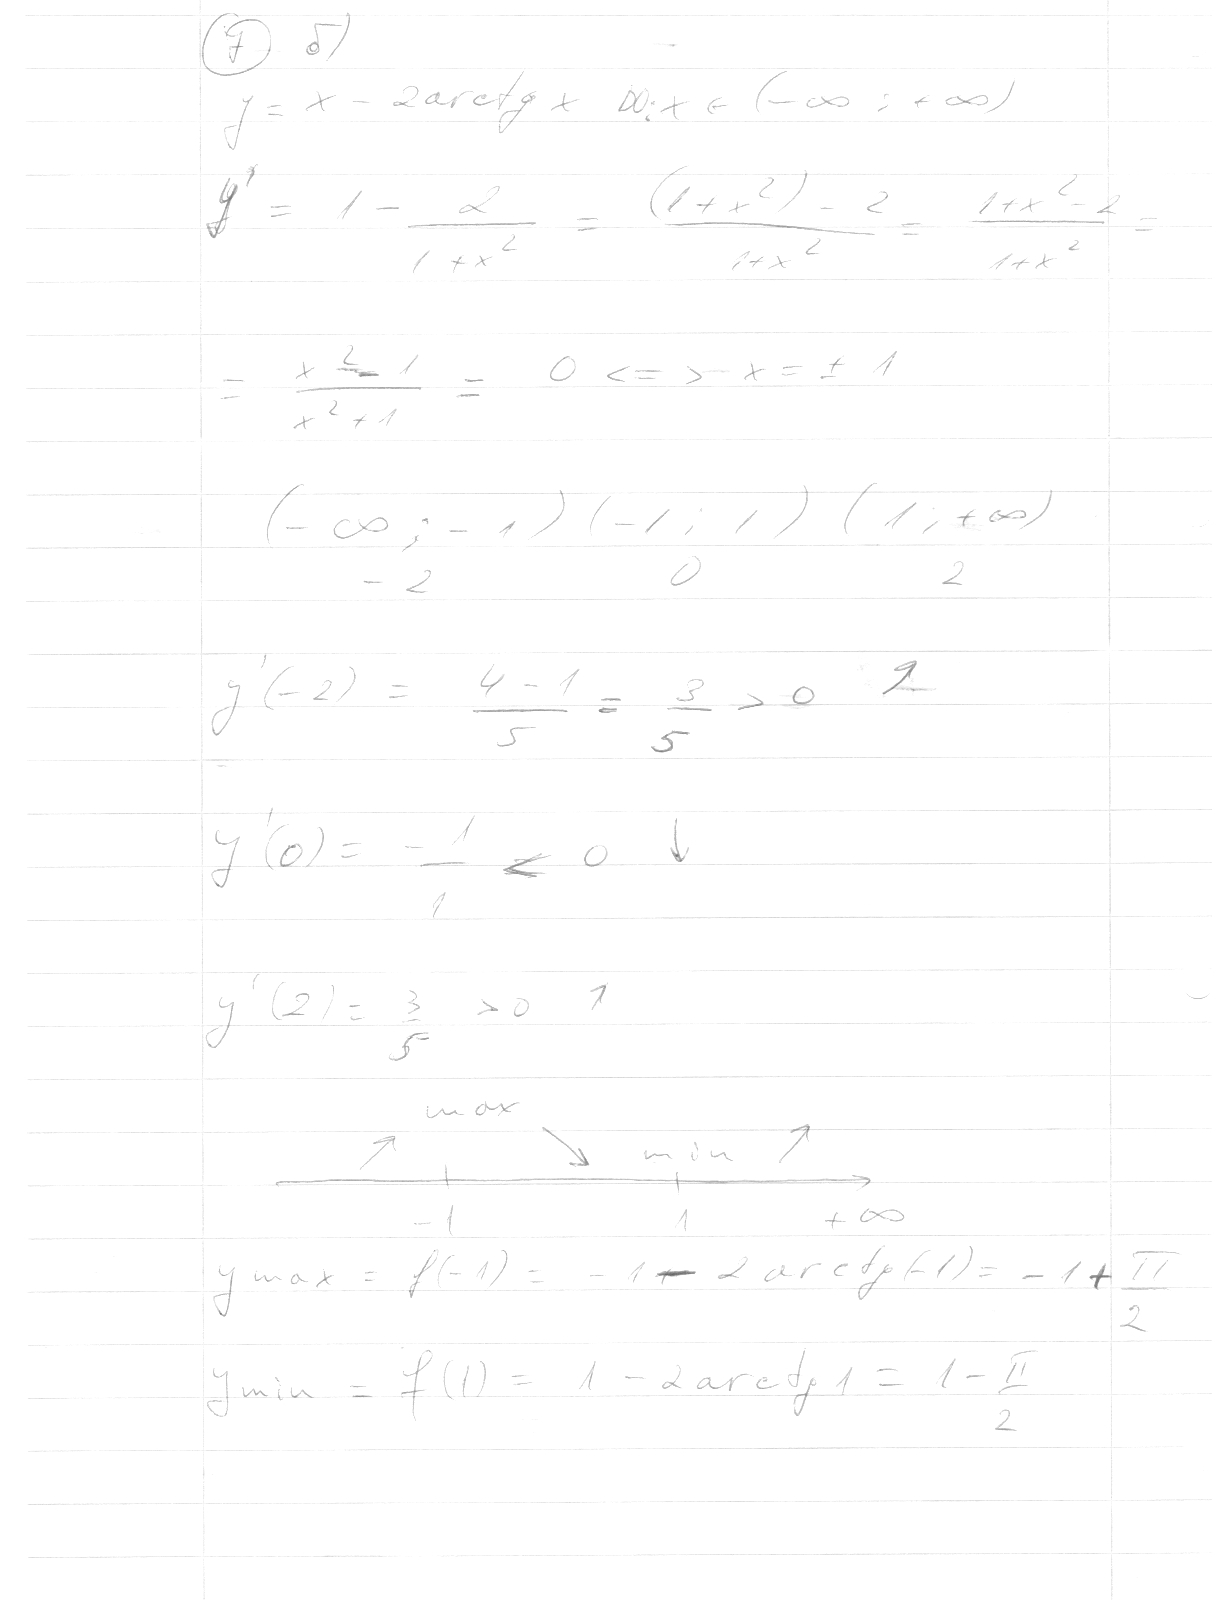 7 б)
y = x - 2arctg x D: x ∈ (-∞ ; +∞)
y' = 1 - 2/(1+x²) = ((1+x²) - 2)/(1+x²) = (1+x²-2)/(1+x²) =
= (x²-1)/(x²+1) = 0 <=> x = ± 1
(-∞ ; -1) (-1 ; 1) (1 ; +∞)
-2 0 2
y'(-2) = (4-1)/5 = 3/5 > 0 ↗
y'(0) = -1/1 < 0 ↓
y'(2) = 3/5 > 0 ↗
max
↗ ↘ min ↗
-1 1 +∞
y max = f(-1) = -1 - 2 arctg(-1) = -1 + π/2
y min = f(1) = 1 - 2 arctg 1 = 1 - π/2